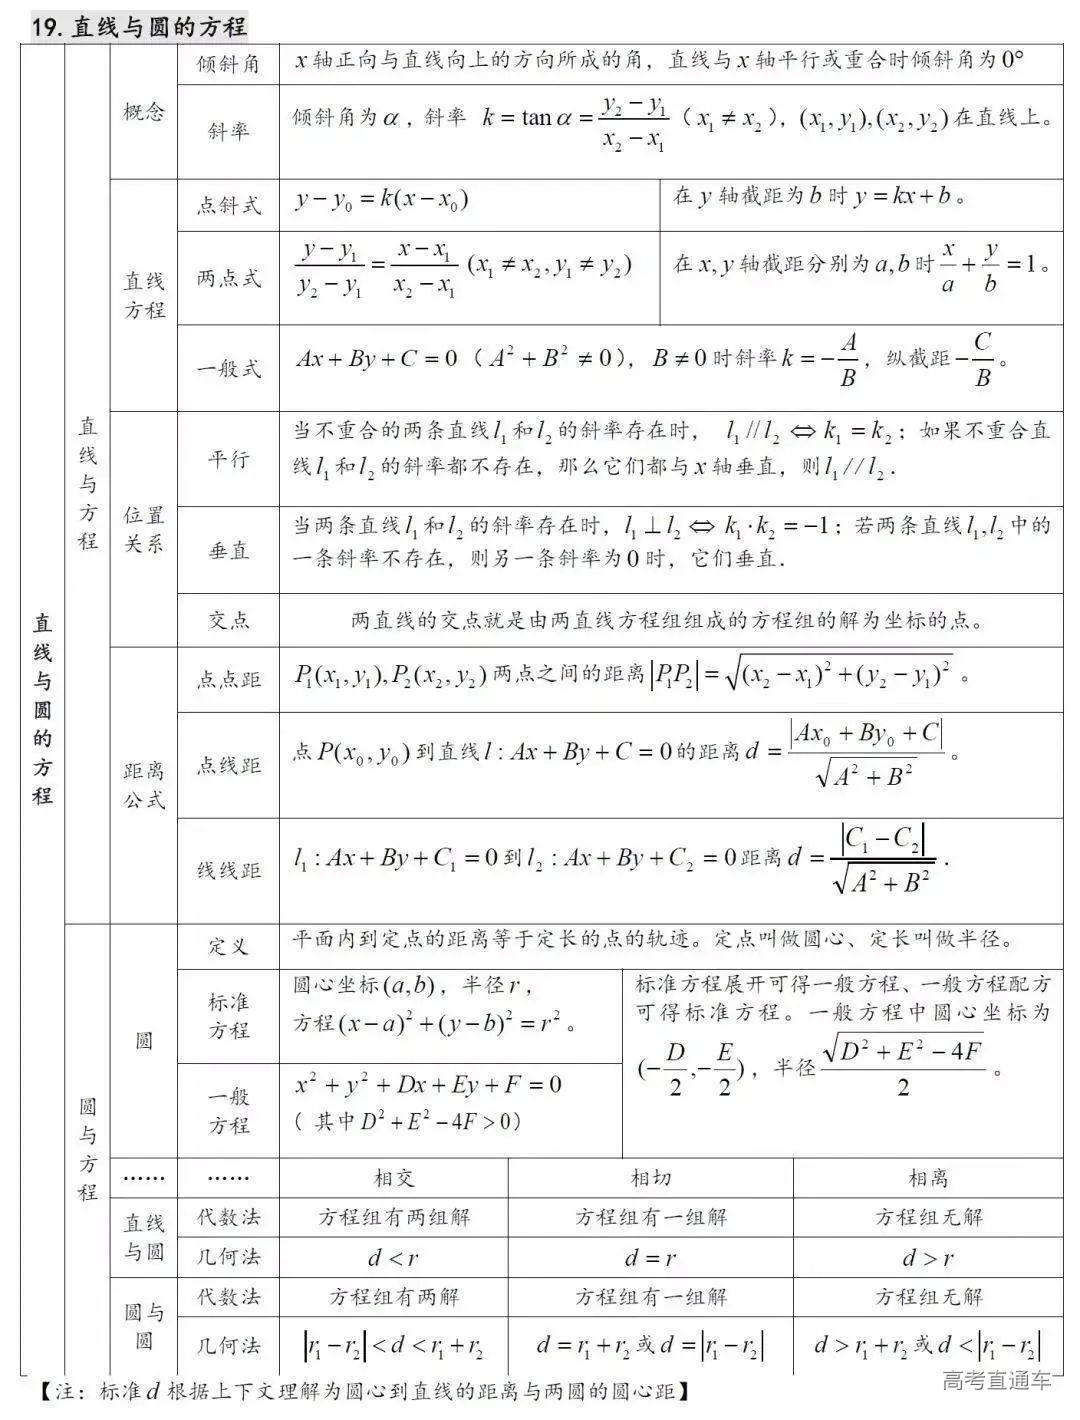 19.直线与圆的方程
直线与圆的方程
直线与方程
概念
倾斜角
x 轴正向与直线向上的方向所成的角，直线与 x 轴平行或重合时倾斜角为 0°
斜率
倾斜角为 α ，斜率 k = tan α = (y₂ − y₁)/(x₂ − x₁)（ x₁ ≠ x₂ ），(x₁, y₁),(x₂, y₂) 在直线上。
直线方程
点斜式
y − y₀ = k(x − x₀)
在 y 轴截距为 b 时 y = kx + b 。
两点式
(y − y₁)/(y₂ − y₁) = (x − x₁)/(x₂ − x₁) (x₁ ≠ x₂, y₁ ≠ y₂)
在 x, y 轴截距分别为 a,b 时 x/a + y/b = 1 。
一般式
Ax + By + C = 0 （ A² + B² ≠ 0），B ≠ 0 时斜率 k = −A/B ，纵截距 −C/B 。
位置关系
平行
当不重合的两条直线 l₁ 和 l₂ 的斜率存在时， l₁ // l₂ ⇔ k₁ = k₂；如果不重合直
线 l₁ 和 l₂ 的斜率都不存在，那么它们都与 x 轴垂直，则 l₁ // l₂ .
垂直
当两条直线 l₁ 和 l₂ 的斜率存在时，l₁ ⊥ l₂ ⇔ k₁ · k₂ = −1；若两条直线 l₁, l₂ 中的
一条斜率不存在，则另一条斜率为 0 时，它们垂直.
交点
两直线的交点就是由两直线方程组组成的方程组的解为坐标的点。
距离公式
点点距
P₁(x₁, y₁), P₂(x₂, y₂) 两点之间的距离 |P₁P₂| = √((x₂ − x₁)² + (y₂ − y₁)²) 。
点线距
点 P(x₀, y₀) 到直线 l : Ax + By + C = 0 的距离 d = |Ax₀ + By₀ + C|/√(A² + B²) 。
线线距
l₁ : Ax + By + C₁ = 0 到 l₂ : Ax + By + C₂ = 0 距离 d = |C₁ − C₂|/√(A² + B²) .
圆与方程
圆
定义
平面内到定点的距离等于定长的点的轨迹。定点叫做圆心、定长叫做半径。
标准方程
圆心坐标 (a,b)，半径 r ，
方程 (x − a)² + (y − b)² = r² 。
标准方程展开可得一般方程、一般方程配方
可得标准方程。一般方程中圆心坐标为
(−D/2, −E/2) ，半径 √(D² + E² − 4F)/2 。
一般方程
x² + y² + Dx + Ey + F = 0
（ 其中 D² + E² − 4F > 0）
…… …… 相交 相切 相离
直线与圆
代数法 方程组有两组解 方程组有一组解 方程组无解
几何法 d < r d = r d > r
圆与圆
代数法 方程组有两解 方程组有一组解 方程组无解
几何法 |r₁ − r₂| < d < r₁ + r₂ d = r₁ + r₂ 或 d = |r₁ − r₂| d > r₁ + r₂ 或 d < |r₁ − r₂|
【注：标准 d 根据上下文理解为圆心到直线的距离与两圆的圆心距】
高考直通车